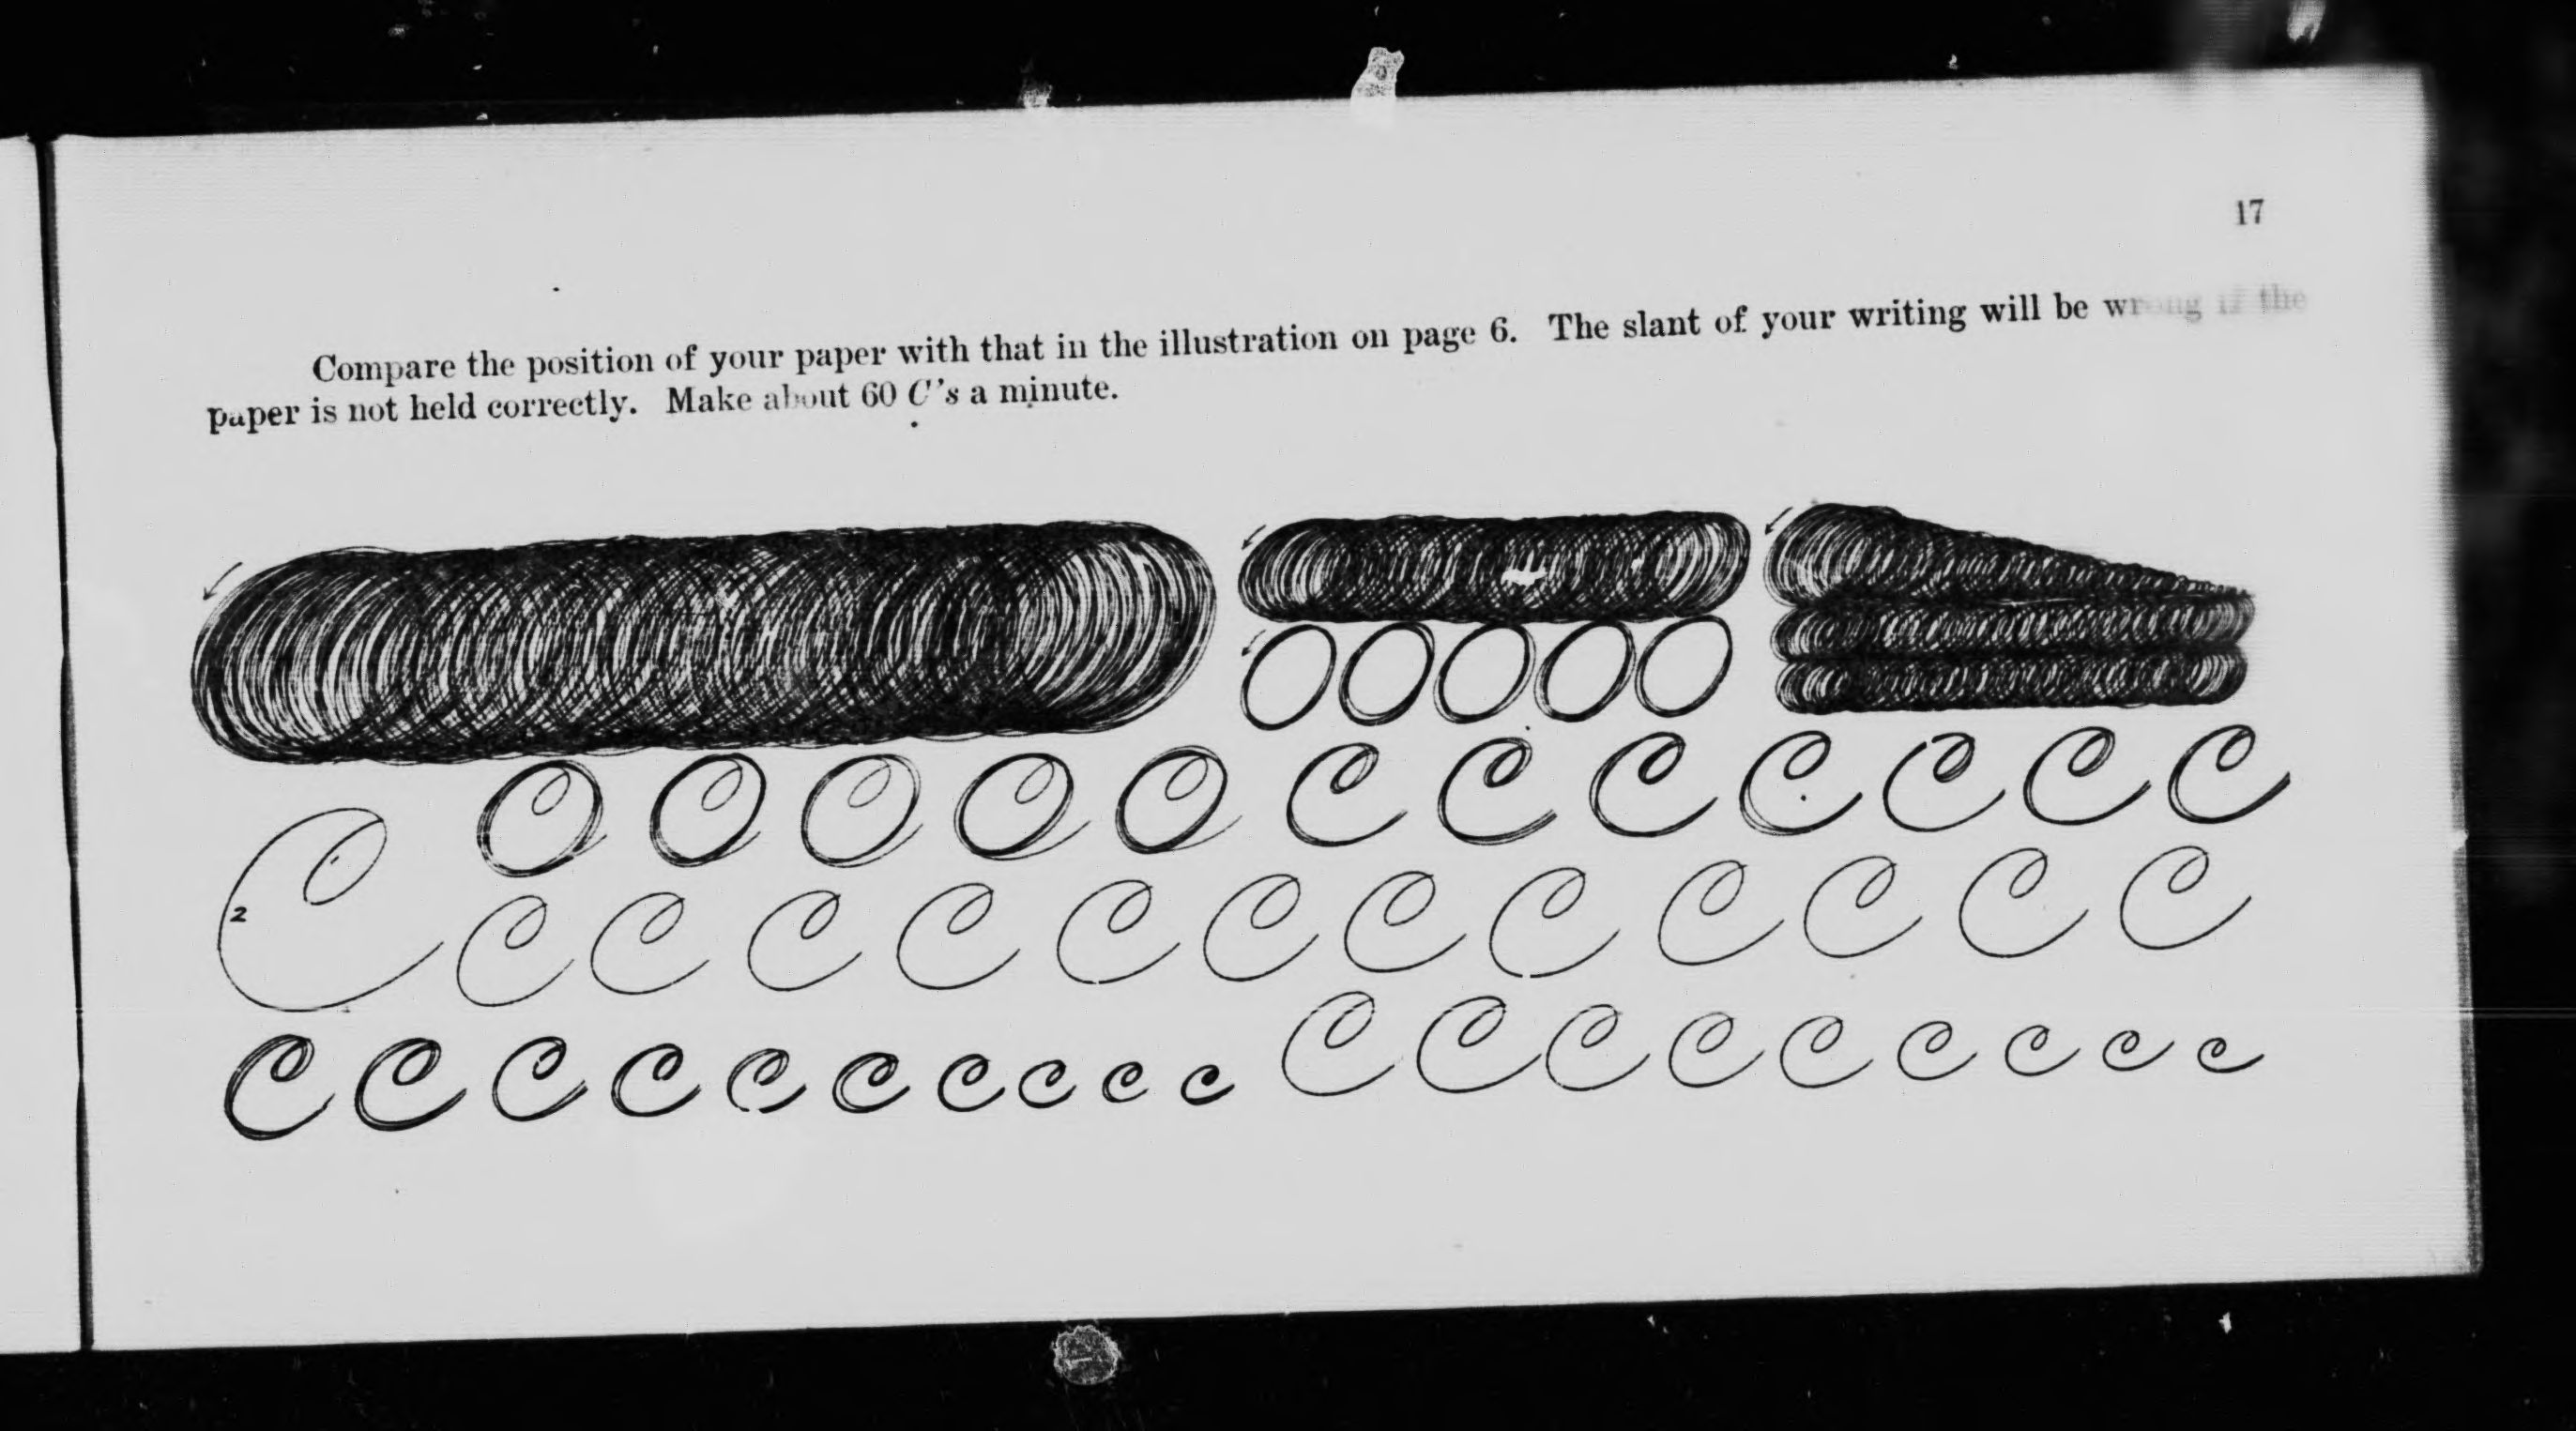 17
Compare the position of your paper with that in the illustration on page 6. The slant of your writing will be wrong if the
paper is not held correctly. Make about 60 C's a minute.
O O O O O
O O O O O C C C C C C C
2
C C C C C C C C C C C C C
C C C C C C C C C C C C C C C C C C C